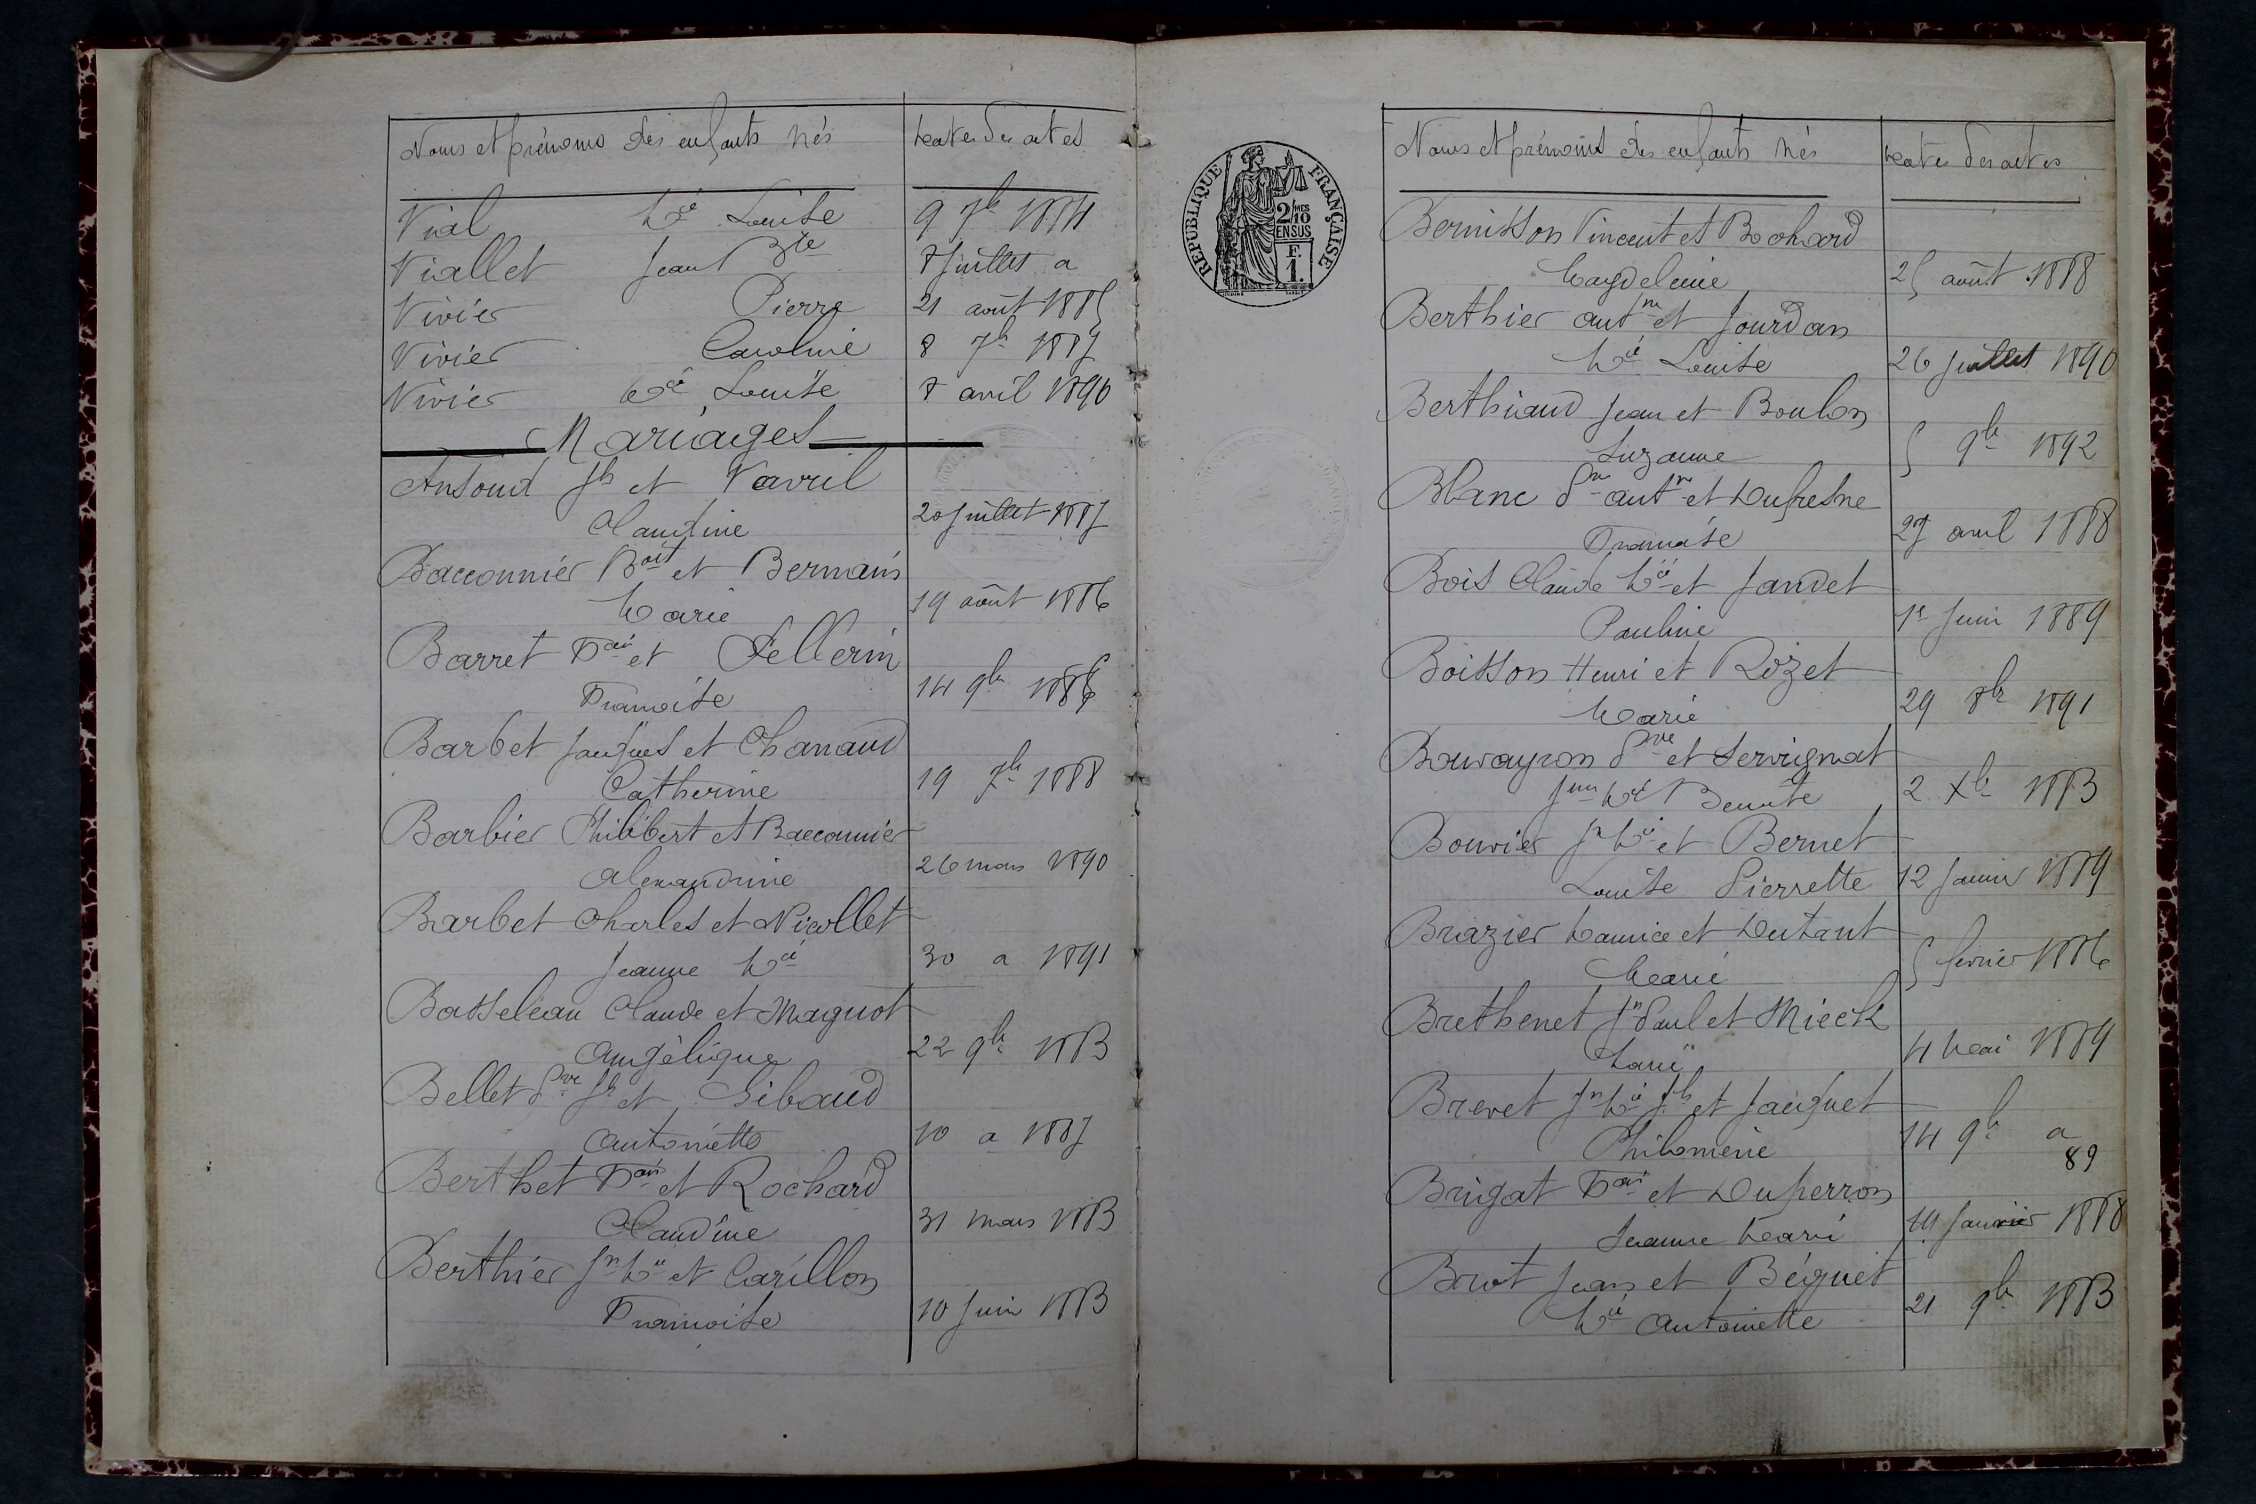 Noms et prénoms des enfants nés
Dates des actes
Vial Mie Louise 9 7b 1884
Viallet Jean Bte 8 juillet a
Vivier Pierre 21 août 1885
Vivier Caroline 8 7b 1887
Vivier Mie Louise 8 avril 1890
Mariages
Ansoud Jh et Vavril
Claudine 20 juillet 1887
Bacconnier Boit et Bernain
Marie 19 août 1886
Barret Fois et Pellerin
Francoise 14 9b 1886
Barbet Jacques et Chanaud
Catherine 19 7b 1888
Barbier Philibert et Bacconnier
Alexandrine 26 mars 1890
Barbet Charles et Nicollet
Jeanne Mie 30 a 1891
Basseleau Claude et Magnot
Angélique 22 9b 1883
Bellet Pre Jh et Gibaud
Antoinette 10 a 1887
Berthet Fois et Rochard
Claudine 31 mars 1883
Berthier Jn Mie et Carillon
Francoise 10 juin 1883
RÉPUBLIQUE FRANÇAISE
2/MES
10
EN SUS
F.
1.
Noms et prénoms des enfants nés
Dates des actes
Bernisson Vincent et Rochard
Magdeleine 25 août 1888
Berthier Antne et Jourdan
Mie Louise 26 juillet 1890
Berthiaud Jean et Boulon
Suzanne 5 9b 1892
Blanc Pre Antne et Dufresne
Francoise 27 avril 1888
Bois Claude Mie et Jandet
Pauline 1r juin 1889
Boisson Henri et Rozet
Marie 29 8b 1891
Bouvayron Pre et Servignat
Jnne Mie Benoite 2 Xb 1883
Bouvier Jn Mie et Bernet
Louise Pierrette 12 janvier 1889
Brazier Maurice et Dutant
Marie 5 février 1886
Brethenet Jn Paul et Mieck
Marie 4 Mai 1889
Brevet Jn Mie Jh et Jacquet
Philomène 14 9b a
89
Brigat Fois et Duperron
Jeanne Marie 14 janvier 1888
Brot Jean et Béguet
Mie Antoinette 21 9b 1883